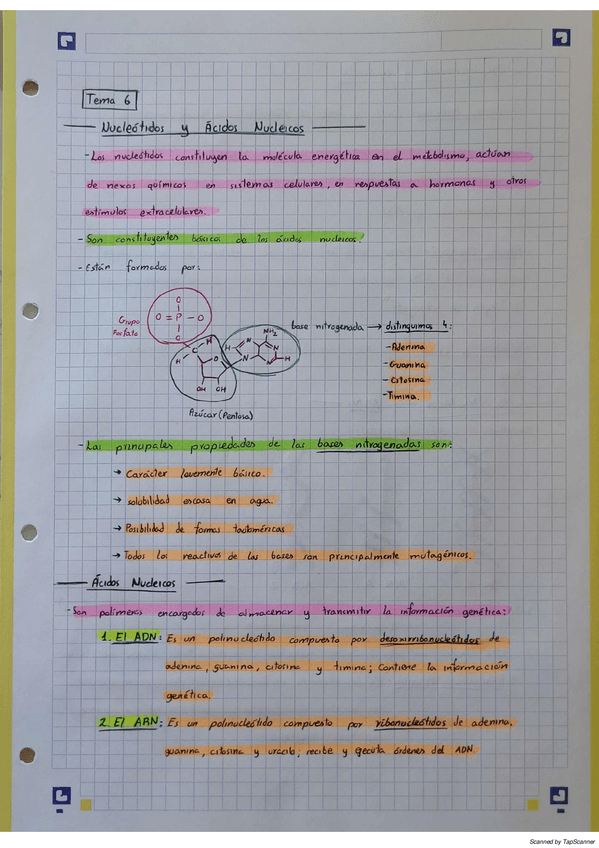 Tema 6
Nucleótidos y Ácidos Nucleicos
- Los nucleótidos constituyen la molécula energética en el metabolismo, actúan
de nexos químicos en sistemas celulares, en respuestas a hormonas y otros
estímulos extracelulares.
- Son constituyentes básicos de los ácidos nucleicos.
- Están formados por:
Grupo
Fosfato
O
O = P - O
O
NH2
base nitrogenada → distinguimos 4:
- Adenina
- Guanina
- Citosina
- Timina.
H
C
H
O
H
N
N
N
N
H
OH
OH
Azúcar (Pentosa)
- Las principales propiedades de las bases nitrogenadas son:
→ Carácter levemente básico.
→ solubilidad escasa en agua.
→ Posibilidad de formas tautoméricas
→ Todos los reactivos de las bases son principalmente mutagénicos.
Ácidos Nucleicos
- Son polímeros encargados de almacenar y transmitir la información genética:
1. El ADN: Es un polinucleótido compuesto por desoxirribonucleótidos de
adenina, guanina, citosina y timina; contiene la información
genética.
2. El ARN: Es un polinucleótido compuesto por ribonucleótidos de adenina,
guanina, citosina y uracilo; recibe y ejecuta órdenes del ADN.
Scanned by TapScanner